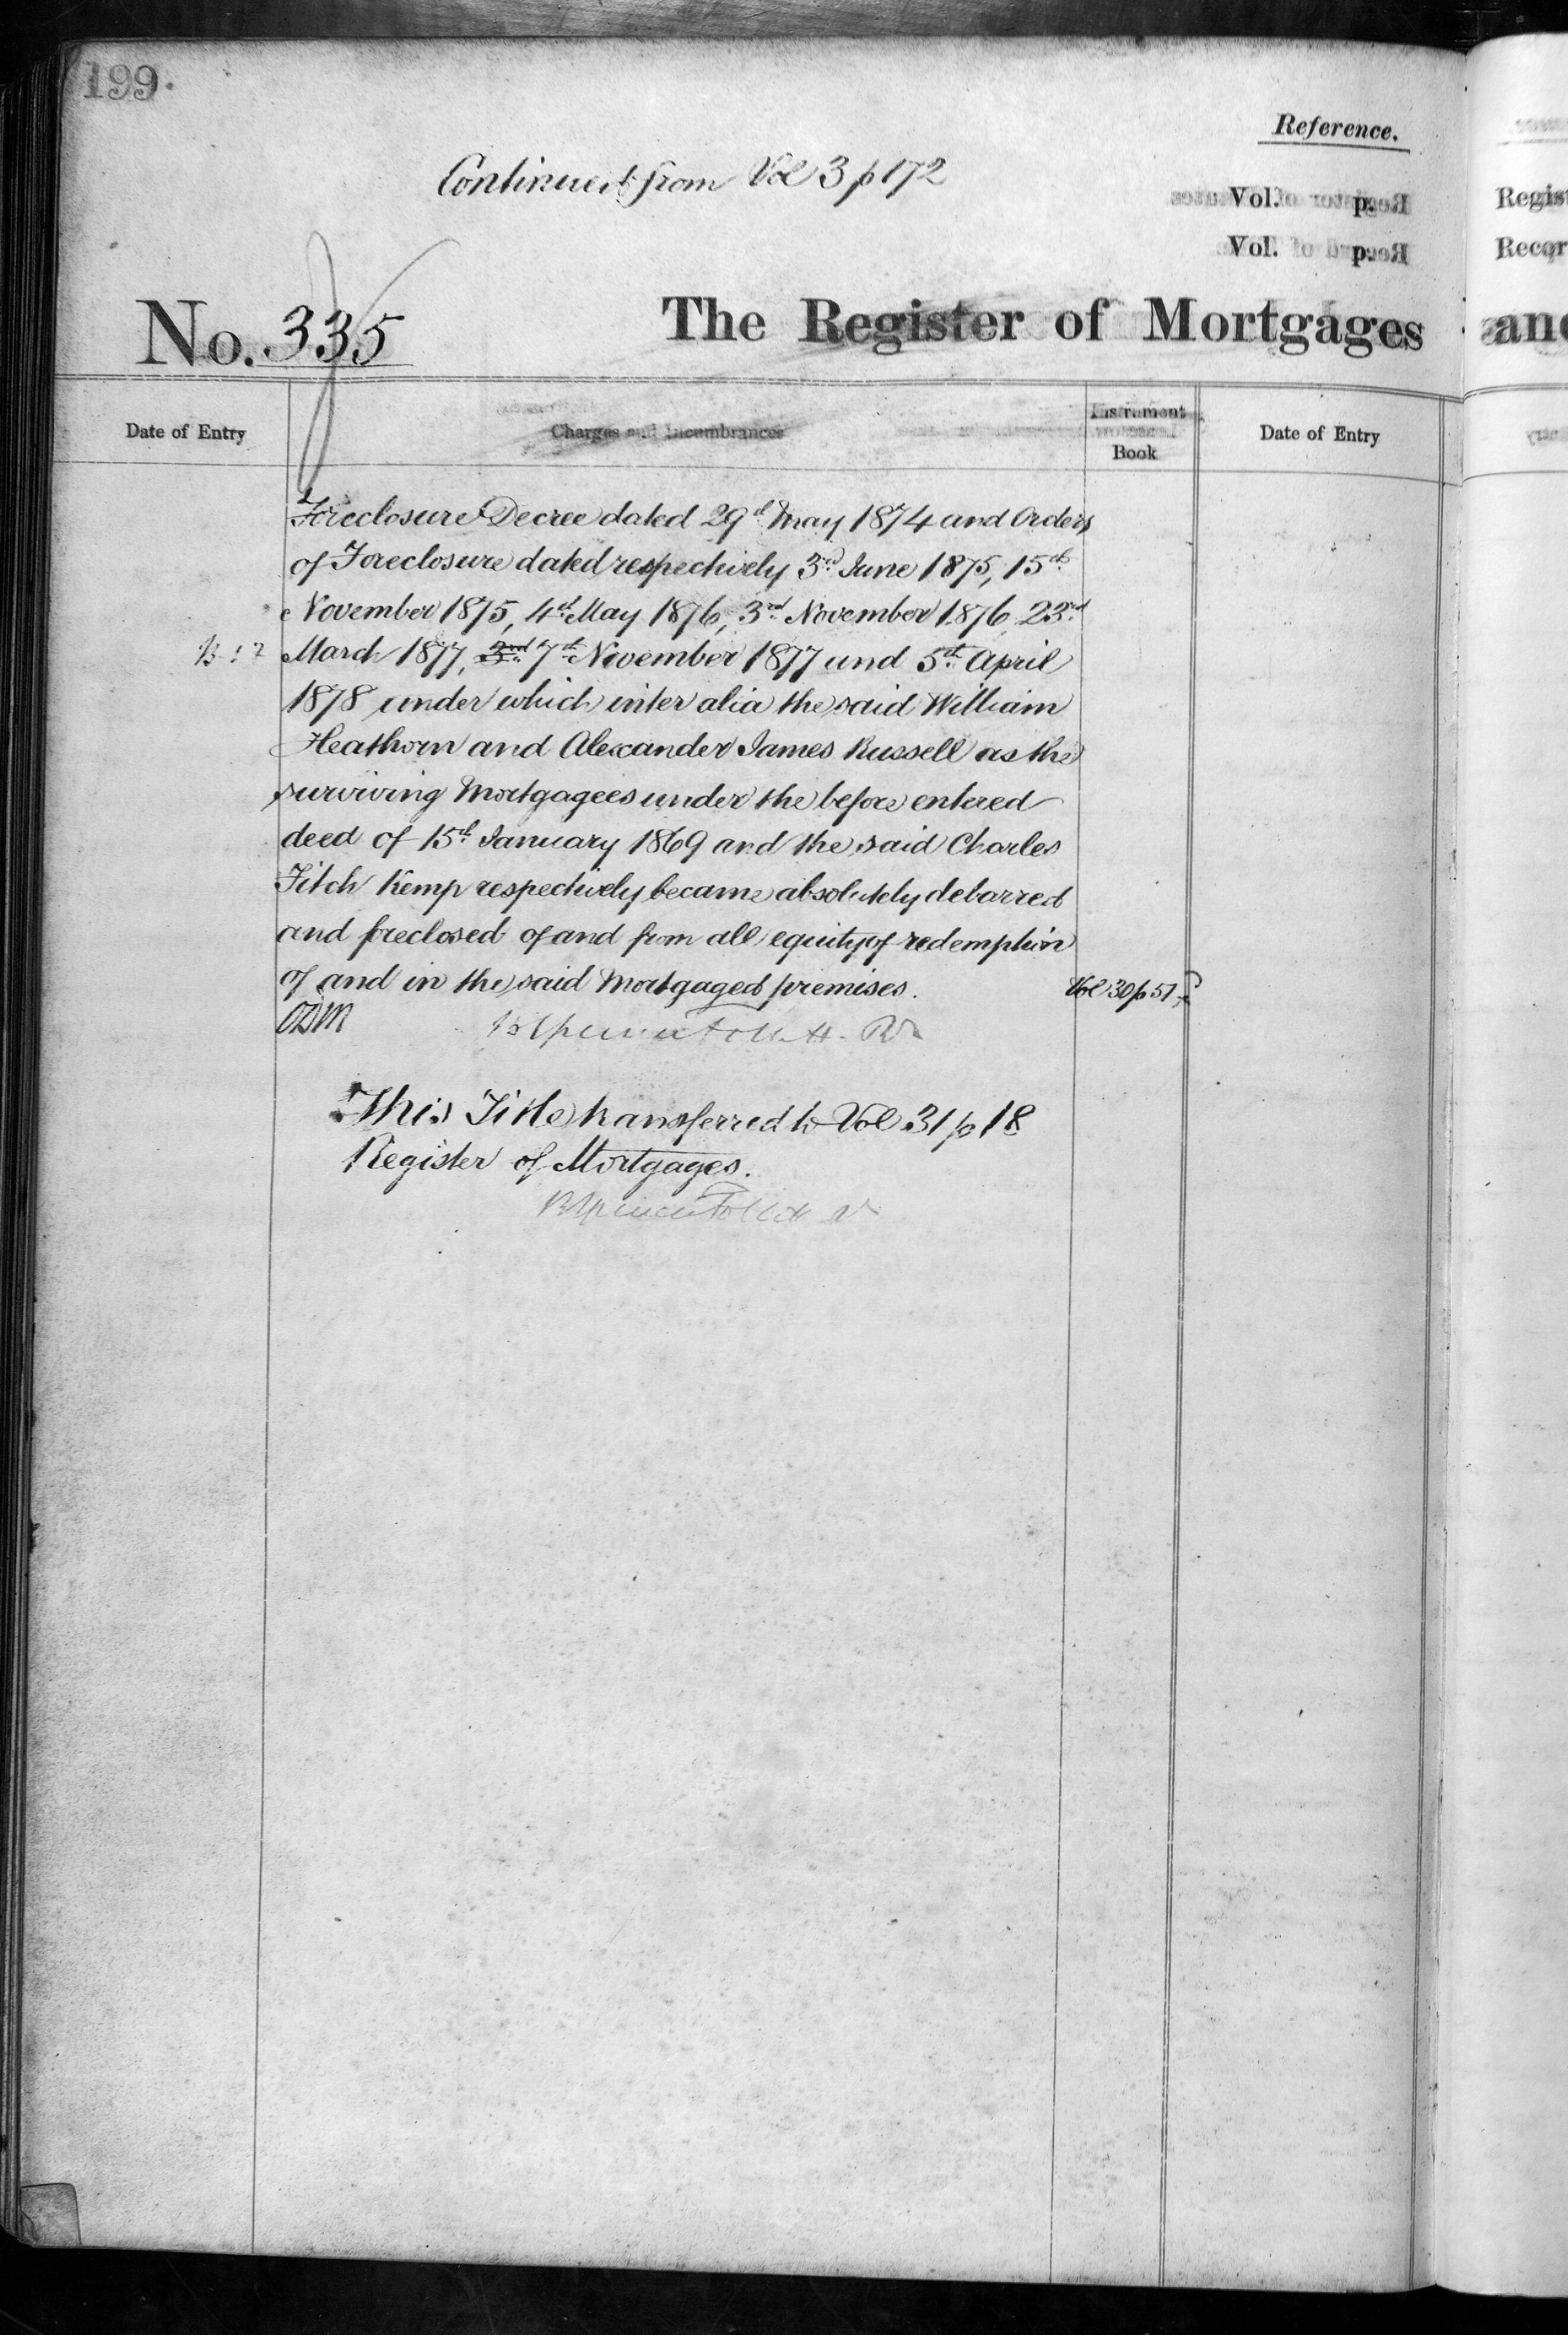 199.
Reference.
Continued from Vol 3 p 172
Vol. p.
Vol. p.
Regist
Recor
No. 335 The Register of Mortgages and
Date of Entry Charges and Incumbrances Instrument Book Date of Entry
Foreclosure Decree dated 29th May 1874 and Orders
of Foreclosure dated respectively 3rd June 1875, 15th
November 1875, 4th May 1876, 3rd November 1876, 23rd
March 1877, 7th November 1877 and 5th April
1878 under which inter alia the said William
Heathorn and Alexander James Russell as the
surviving Mortgagees under the before entered
deed of 15th January 1869 and the said Charles
Fitch Kemp respectively became absolutely debarred
and foreclosed of and from all equity of redemption
of and in the said Mortgaged premises. Vol 30 p 51
ODM
This Title transferred to Vol 31 p 18
Register of Mortgages.